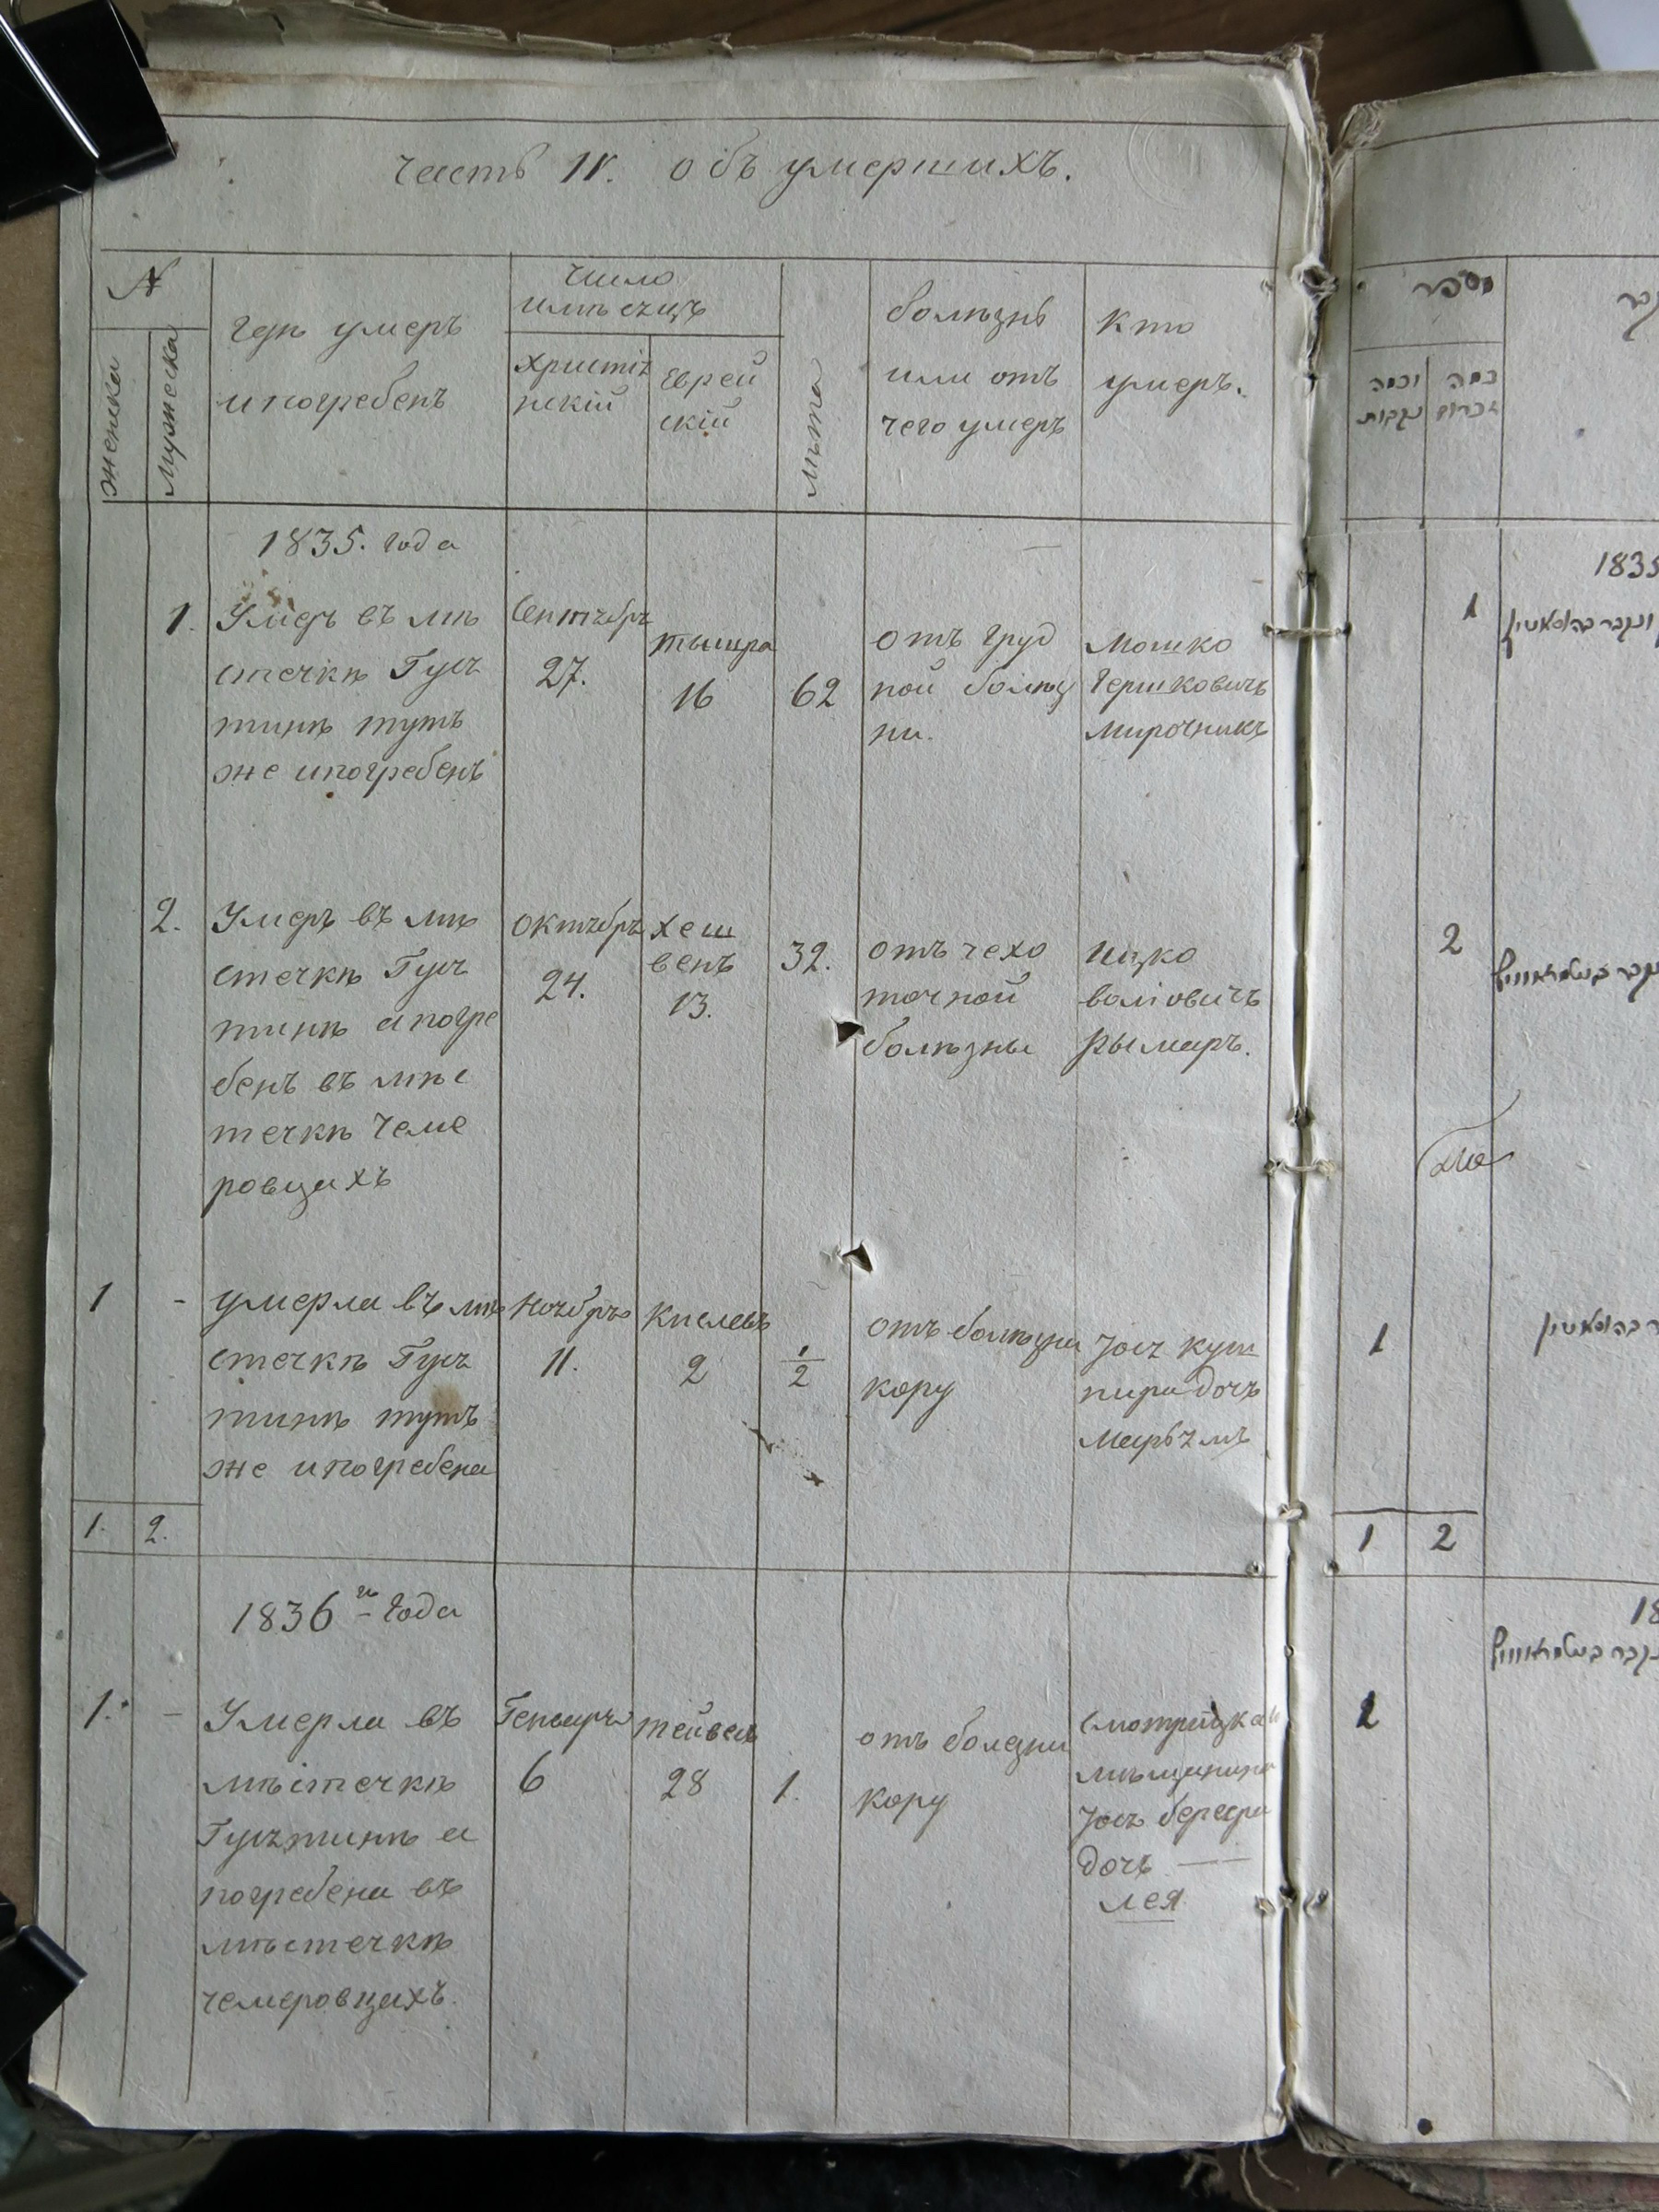 часть IV. объ умершихъ.
№
женска
Мужеска
гдѣ умеръ
и погребенъ
число
и мѣсецъ
христіа
нскій
еврей
скій
лѣта
болѣзнь
или отъ
чего умеръ
кто
умеръ.
1835. года
1.
Умеръ въ мѣ
стечкѣ Гуся
тинѣ тутъ
же и погребенъ
Сентябрь
27.
тышра
16
62
отъ груд
ной болѣз
ни.
Мошко
Гершковичъ
Мирочникъ
2.
Умеръ въ мѣ
стечкѣ Гуся
тинѣ а погре
бенъ въ мѣс
течкѣ Чеме
ровцахъ
октябрь
24.
хеш
венъ
13.
32.
отъ чехо
точной
болѣзны
Ицко
воліовичъ
Рымаръ.
1
-
умерла въ мѣ
стечкѣ Гуся
тинѣ тутъ
же и погребена
Ноябрь
11.
кислевъ
2
1/2
отъ болѣзни
кору
Іося куш
нира дочъ
Марьямъ
1. 2.
1836 го года
1. -
Умерла въ
мѣстечкѣ
Гусятинѣ а
погребена въ
мѣстечкѣ
чемеровцахъ.
Генварь
6
тейвесъ
28
1.
отъ болезни
кору
смотрицкаи
мѣщанина
Іося
дочъ
лея
מספר
נקבות
1835
1
2
1
1 2
18
1